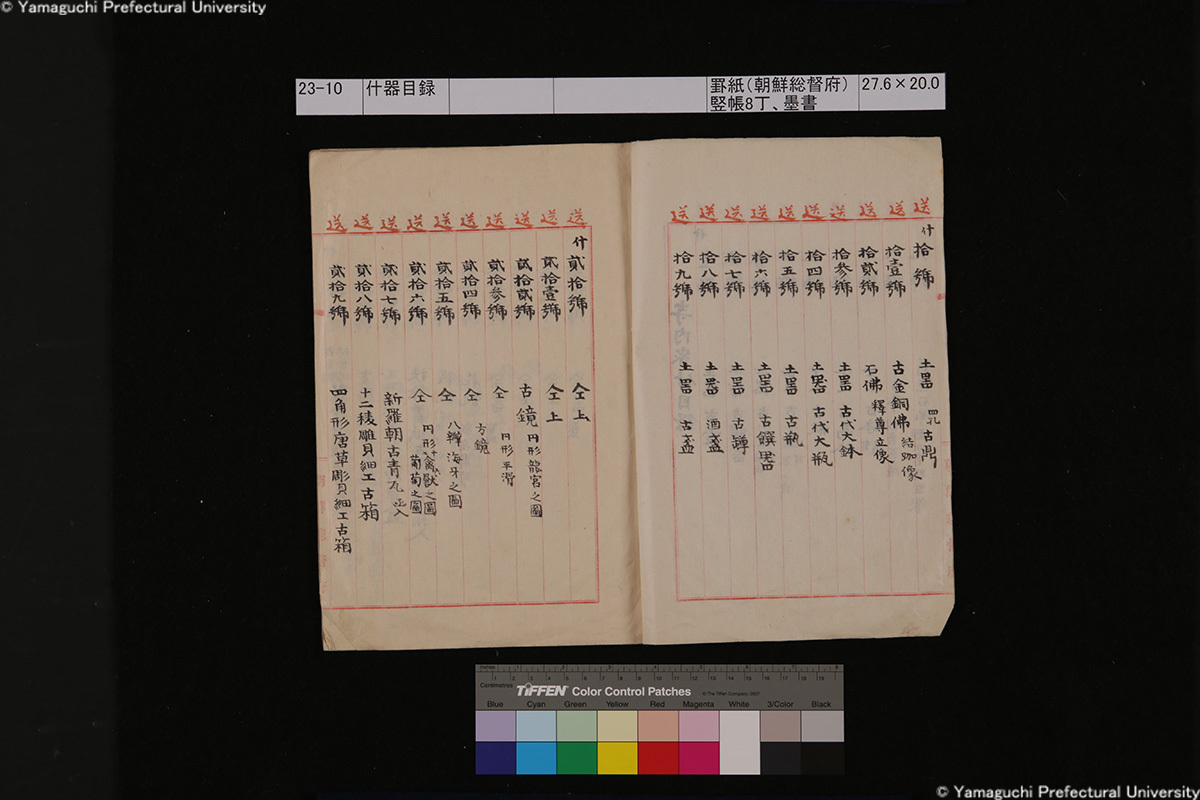 © Yamaguchi Prefectural University
23-10
什器目録
罫紙（朝鮮総督府）
竪帳8丁、墨書
27.6×20.0
送 什 拾號 土器 四孔 古鼎
送 拾壹號 古金銅佛 結跏像
送 拾貳號 石佛 釋尊立像
送 拾参號 土器 古代大鉢
送 拾四號 土器 古代大瓶
送 拾五號 土器 古瓶
送 拾六號 土器 古饌器
送 拾七號 土器 古罇
送 拾八號 土器 酒盞
送 拾九號 土器 古盞
送 什 貳拾號 仝上
送 貳拾壹號 仝上
送 貳拾貳號 古鏡 円形龍宮之圖
送 貳拾参號 仝 円形平滑
送 貳拾四號 仝 方鏡
送 貳拾五號 仝 八瓣海牙之圖
送 貳拾六號 仝 円形禽獣之圖 葡萄之圖
送 貳拾七號 新羅朝古青瓦 函入
送 貳拾八號 十二稜雕貝細工古箱
送 貳拾九號 四角形唐草彫貝細工古箱
inches 1 2 3 4 5 6 7 8
Centimetres 1 2 3 4 5 6 7 8 9 10 11 12 13 14 15 16 17 18 19
TIFFEN Color Control Patches
© The Tiffen Company, 2007
Blue Cyan Green Yellow Red Magenta White 3/Color Black
© Yamaguchi Prefectural University